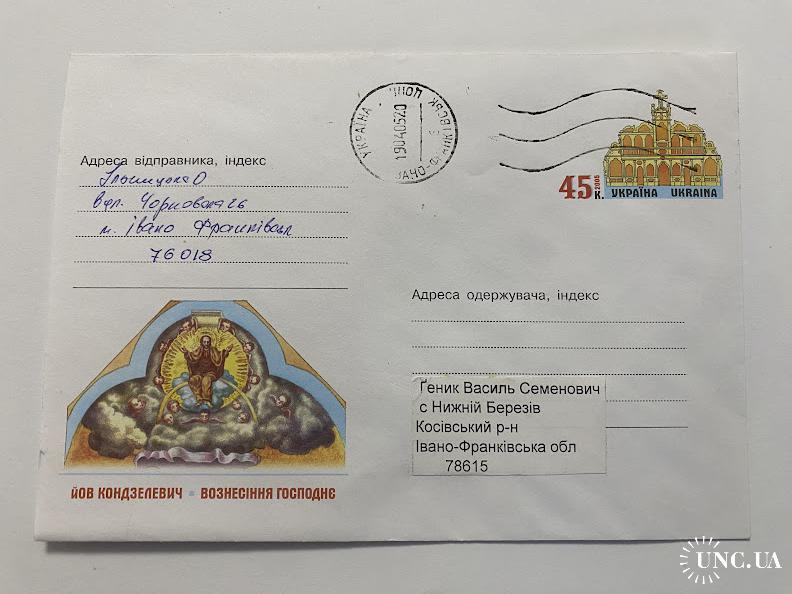 УКРАЇНА ПОШ
190405 20
45 К. 2005
УКРАЇНА UKRAINA
Адреса відправника, індекс
вул. Чорновола 26
м. Івано Франківськ
76018
Адреса одержувача, індекс
Ґеник Василь Семенович
с Нижній Березів
Косівський р-н
Івано-Франківська обл
78615
ЙОВ КОНДЗЕЛЕВИЧ ▪ ВОЗНЕСІННЯ ГОСПОДНЄ
UNC.UA